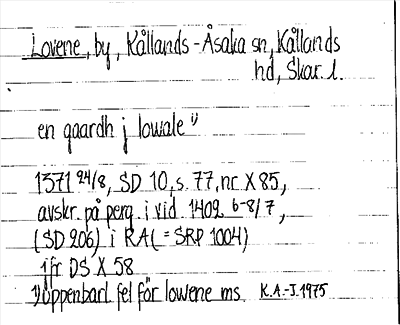 Lovene, by, Kållands-Åsaka sn, Kållands
hd, Skar. l.
en gaardh j lowale 1)
1371 24/8, SD 10, s. 77, nr X 85,
avskr. på perg. i vid. 1402 6-8/7,
(SD 206) i RA (= SRP 1004)
jfr DS X 58
1) Uppenbarl. fel för lowene ms. K.A.-J. 1975